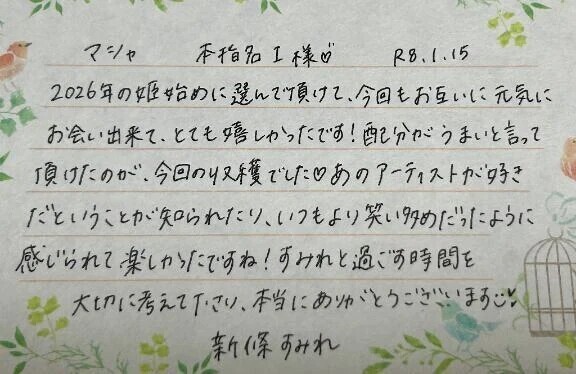 マシャ 本指名I様♡ R8.1.15
2026年の姫始めに選んで頂けて、今回もお互いに元気に
お会い出来て、とても嬉しかったです！配分がうまいと言って
頂けたのが、今回の収穫でした♡あのアーティストが好き
だということが知られたり、いつもより笑い多めだったように
感じられて楽しかったですね！すみれと過ごす時間を
大切に考えて下さり、本当にありがとうございます
新條すみれ